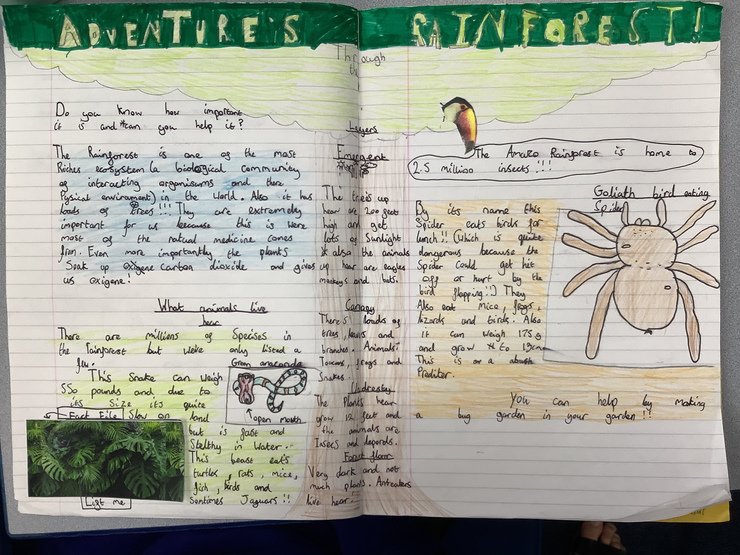 ADVENTURE'S RAINFOREST!
Through
the
Do you know how important
it is and can you help it?
The Rainforest is one of the most
Riches ecosystem (a biological community
of interacting organisums and there
Pysical enviroment) in the World. Also it has
loads of trees!!! They are extremely
important for us because this is were
most of the natural medicine comes
from. Even more importantly the plants
Soak up carbon dioxide and gives
us oxigene!
What animals live
hear
There are millions of Speices in
the rainforest but we've only listed a
few.
Green anaconda
This Snake can weigh
550 pounds and due to
its Size its quite
Fact File Slow on land
but is fast and
Stelthy in Water.
This beast eats
turtles, rats, mice,
fish, birds and
Somtimes Jaguars!!
open mouth
Lift me
Layers
Emergent
The trees up
hear are 200 feet
high and get
lots of Sunlight
also the animals
up hear are eagles
monkeys and bats.
Canopy
There's loads of
trees, leaves and
branches. Animals:
Toucans, frogs and
Snakes.
The Plants hear
grow 12 feet and
the animals are
Insects and lepords.
Forest floor
Very dark and not
much plants. Anteaters
live hear.
The Amazo Rainforest is home to
2.5 million insects!!!
Goliath bird eating
Spider
By its name this
Spider eats birds for
lunch!! (which is quite
dangerous because the
Spider could get hit
off or hurt by the
bird flapping!!) They
Also eat mice, frogs,
lizards and birds. Also
it can weigh 175g
and grow to 19cm
This is a
Prediter.
You can help by making
a bug garden in your garden!!